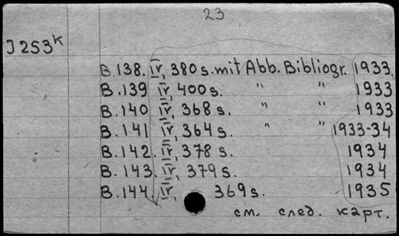 23
J 253ᴷ
B.138. IV, 380 s. mit Abb. Bibliogr. 1933,
B.139 IV, 400 s. " " 1933
B.140 IV, 368 s. " " 1933
B.141 IV, 364 s. " " 1933-34
B.142 IV, 378 s. 1934
B.143 IV, 379 s. 1934
B.144. IV, 369 s. 1935
см. след. карт.